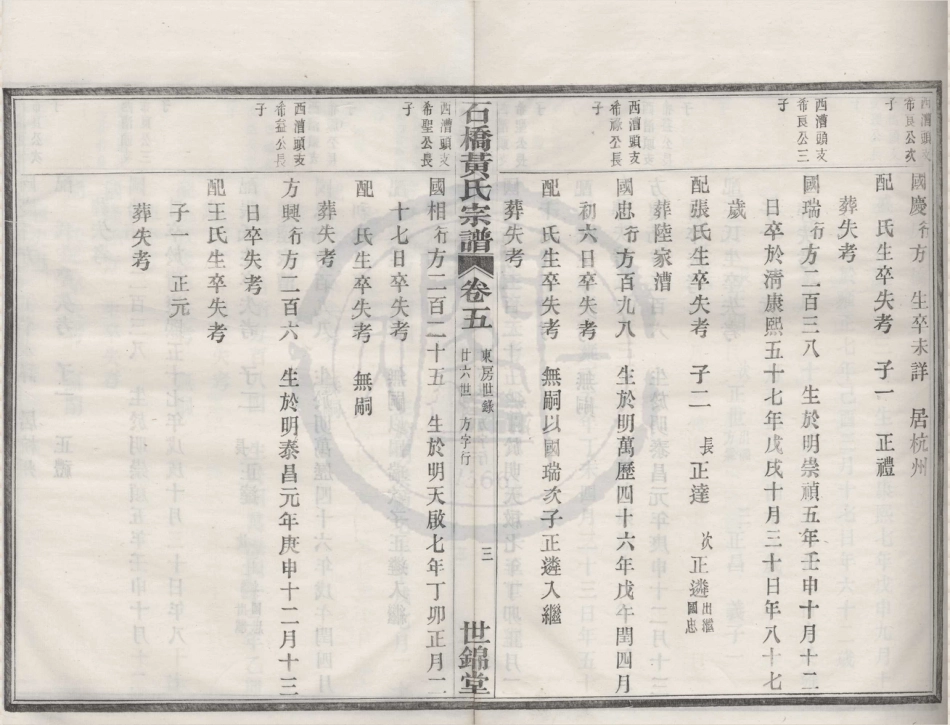 西漕頭支
希良公次
子
國慶行方　生卒未詳　居杭州
配　氏生卒失考　子一　正禮
葬失考
西漕頭支
希良公三
子
國瑞行方二百三八　生於明崇禎五年壬申十月十二
日卒於清康熙五十七年戊戌十月三十日年八十七
歲
配張氏生卒失考　子二　長正達　次正遴出繼國忠
葬陸家漕
西漕頭支
希祿公長
子
國忠行方百九八　生於明萬歷四十六年戊午閏四月
初六日卒失考
配　氏生卒失考　無嗣以國瑞次子正遴入繼
葬失考
石橋黃氏宗譜　卷五　東房世錄　廿六世　方字行　三　世錦堂
西漕頭支
希聖公長
子
國相行方二百二十五　生於明天啟七年丁卯正月二
十七日卒失考
配　氏生卒失考　無嗣
葬失考
西漕頭支
希益公長
子
方興行方二百六　生於明泰昌元年庚申十二月十三
日卒失考
配王氏生卒失考
子一　正元
葬失考